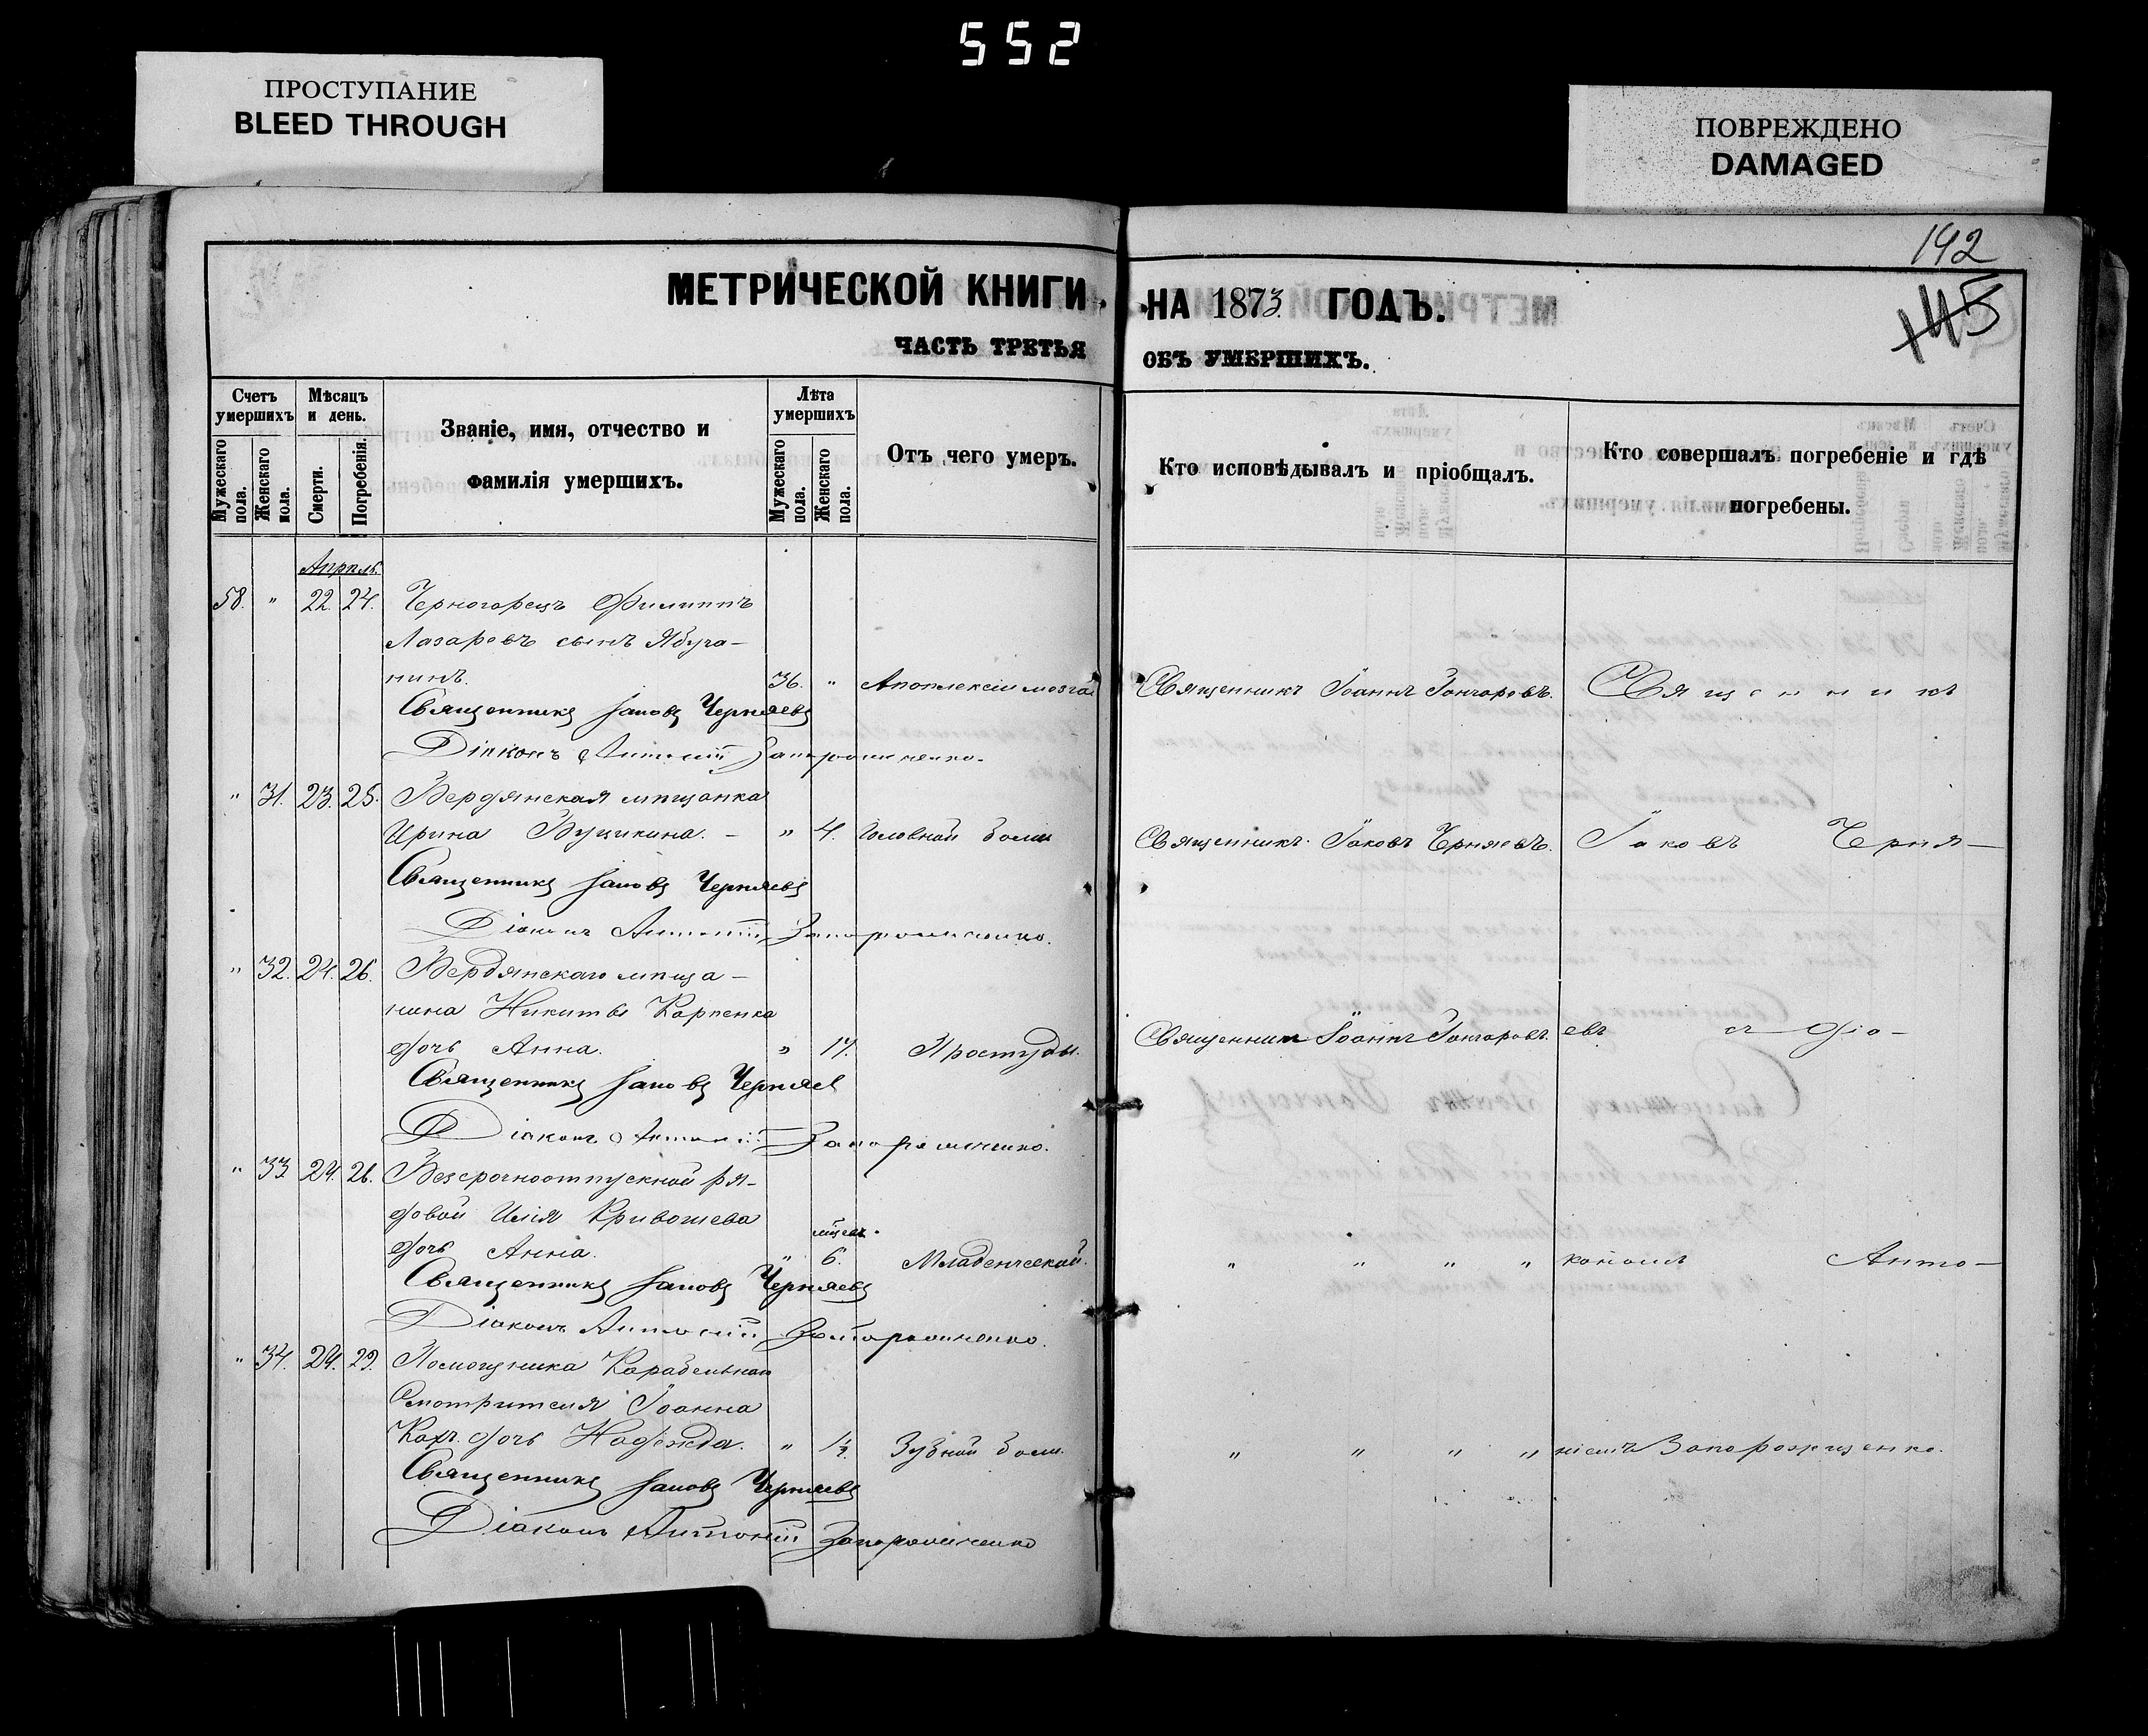 552
ПРОСТУПАНИЕ
BLEED THROUGH
ПОВРЕЖДЕНО
DAMAGED
192
145
МЕТРИЧЕСКОЙ КНИГИ НА 1873. ГОДЪ.
ЧАСТЬ ТРЕТЬЯ ОБЪ УМЕРШИХЪ.
Счетъ умершихъ
Мужескаго пола.
Женскаго пола.
Мѣсяцъ и день.
Смерти.
Погребенія.
Званіе, имя, отчество и
фамилія умершихъ.
Лѣта умершихъ
Мужескаго пола.
Женскаго пола.
Отъ чего умеръ.
Кто исповѣдывалъ и пріобщалъ.
Кто совершалъ погребеніе и гдѣ
погребены.
Апрѣль.
58. " 22. 24. Черногорецъ Филиппъ
Лазаревъ сынъ Ябуча-
нинъ. 36. " Апоплексіи мозга Священникъ Іоаннъ Гончаровъ. Священникъ
Священникъ Іаковъ Черняевъ
Діаконъ Антоній Запорожченко.
" 31. 23. 25. Бердянская мѣщанка
Ирина " 4. Головной боли Священникъ Іаковъ Черняевъ. Іаковъ Черня-
Священникъ Іаковъ Черняевъ
Діаконъ Антоній Запорожченко.
" 32. 24. 26. Бердянскаго мѣща-
нина Никиты Карпенка
дочь Анна. " 17. Простуды. Священникъ Іоаннъ Гончаровъ. евъ съ Діа-
Священникъ Іаковъ Черняев
Діаконъ Антоній Запорожченко.
" 33. 24. 26. Безсрочноотпускной ря-
довой Илія Кривошева
мѣсяц.
дочь Анна. " 6. Младенческой. " " " " кономъ Анто-
Священникъ Іаковъ Черняевъ
Діаконъ Антоній Запорожченко.
" 34. 24. 29. Помощника Карабельнаго
Смотрителя Іоанна
дочь Надежда. " Зубной боли. " " " " ніемъ Запорожченко.
Священникъ Іаковъ Черняевъ
Діаконъ Антоній Запорожченко